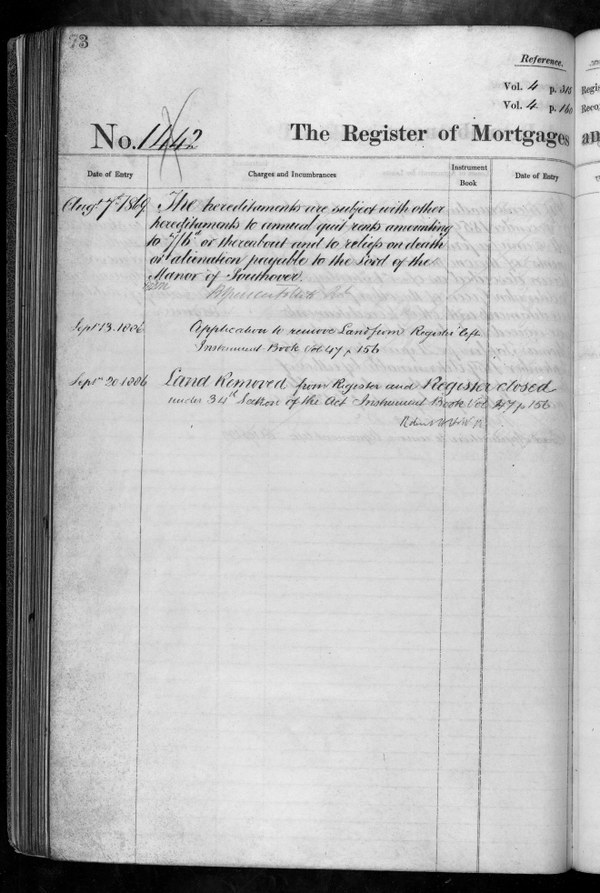 73
Reference.
Vol. 4 p. 315
Vol. 4 p. 160
No. 1442 The Register of Mortgages an
Regis
Reco
Date of Entry Charges and Incumbrances Instrument Book Date of Entry
Augt 7th 1869 The hereditaments are subject with other
hereditaments to annual quit rents amounting
to 7/6d or thereabout and to reliefs on death
or alienation payable to the Lord of the
Manor of Southover.
Sept 13. 1886 Application to remove Land from Register left
Instrument Book Vol 47 p 156
Septr 20 1886 Land Removed from Register and Register closed
under 34th Section of the Act Instrument Book Vol 47 p 156